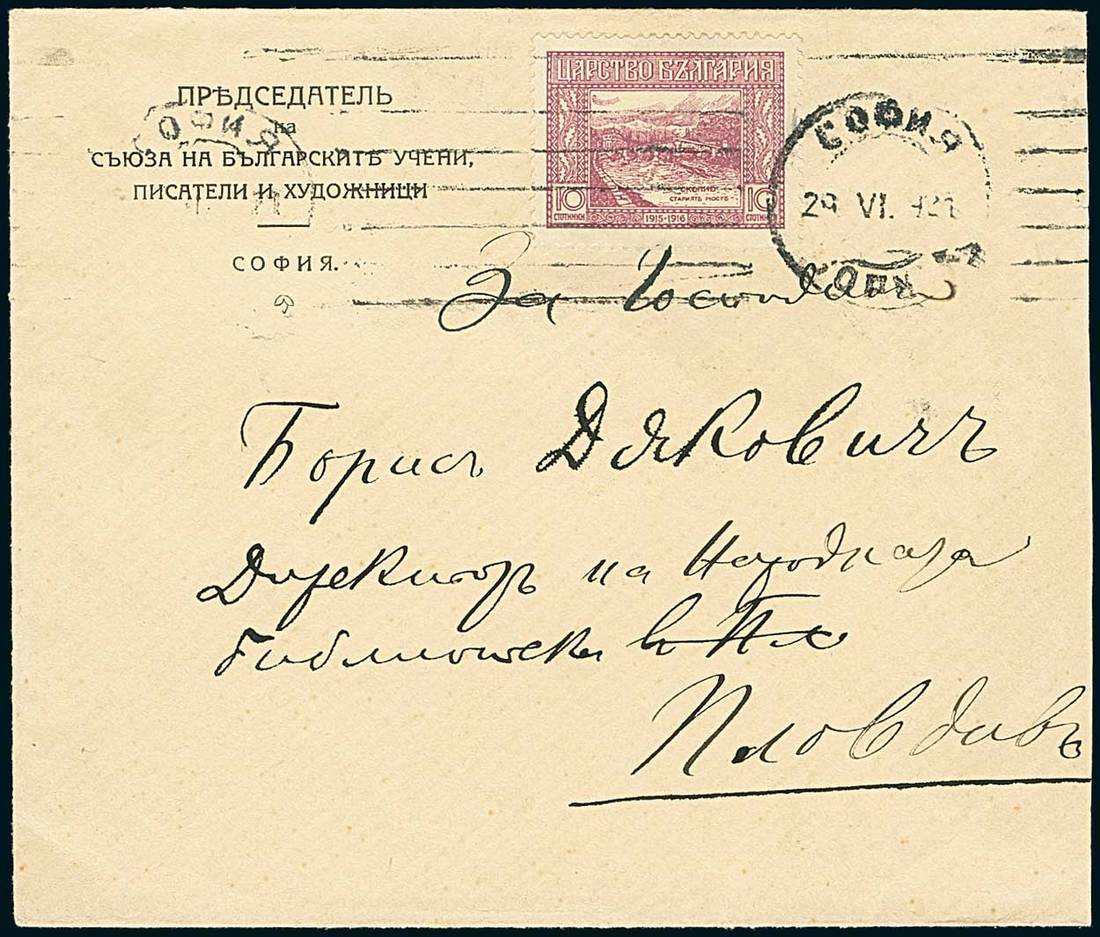 ПРѢДСЕДАТЕЛЬ
на
СЪЮЗА НА БЪЛГАРСКИТѢ УЧЕНИ,
ПИСАТЕЛИ И ХУДОЖНИЦИ
СОФИЯ.
СОФИЯ
ЦАРСТВО БЪЛГАРИЯ
СКОПИЕ
СТАРИЯТЪ МОСТЪ
10 1915-1916 10
СТОТИНКИ СТОТИНКИ
СОФИЯ
29 VI. 921
За Господинъ
Борисъ Дяковичъ
Директоръ на Народната
библиотека въ Пл
Пловдивъ